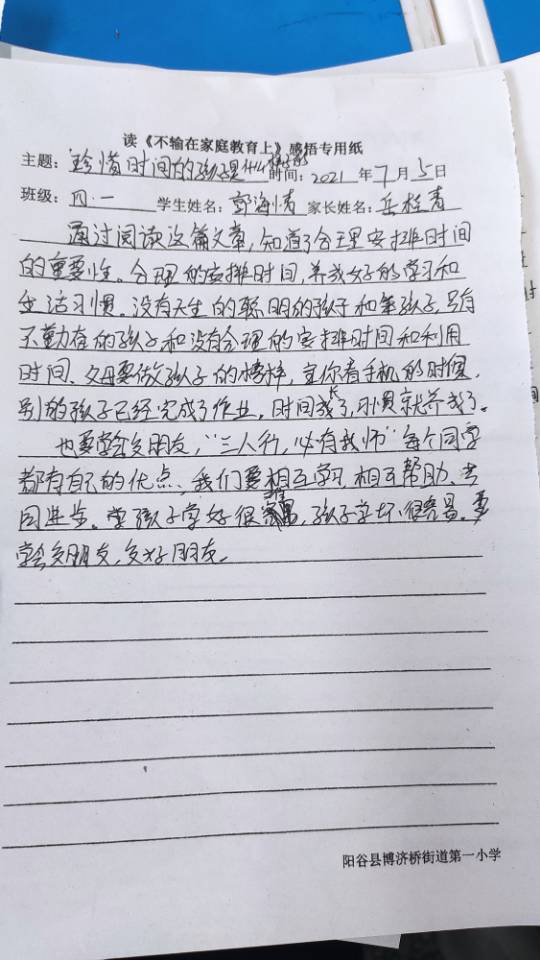 读《不输在家庭教育上》感悟专用纸
主题：珍惜时间的孩子是 时间：2021年7月5日
班级：四.一 学生姓名：郭海情 家长姓名：岳桂青
通过阅读这篇文章，知道了合理安排时间
的重要性。合理的安排时间，养成好的学习和
生活习惯。没有天生的聪明的孩子和笨孩子，只有
不勤奋的孩子和没有合理的安排时间和利用
时间、父母要做孩子的榜样，当你看手机的时候，
别的孩子已经完成了作业，时间长了，习惯就养成了。
也要学会交朋友，“三人行，必有我师”每个同学
都有自己的优点、我们要相互学习，相互帮助、共
同进步。学孩子学好很难，孩子学坏很容易。要
学会交朋友，交好朋友。
阳谷县博济桥街道第一小学